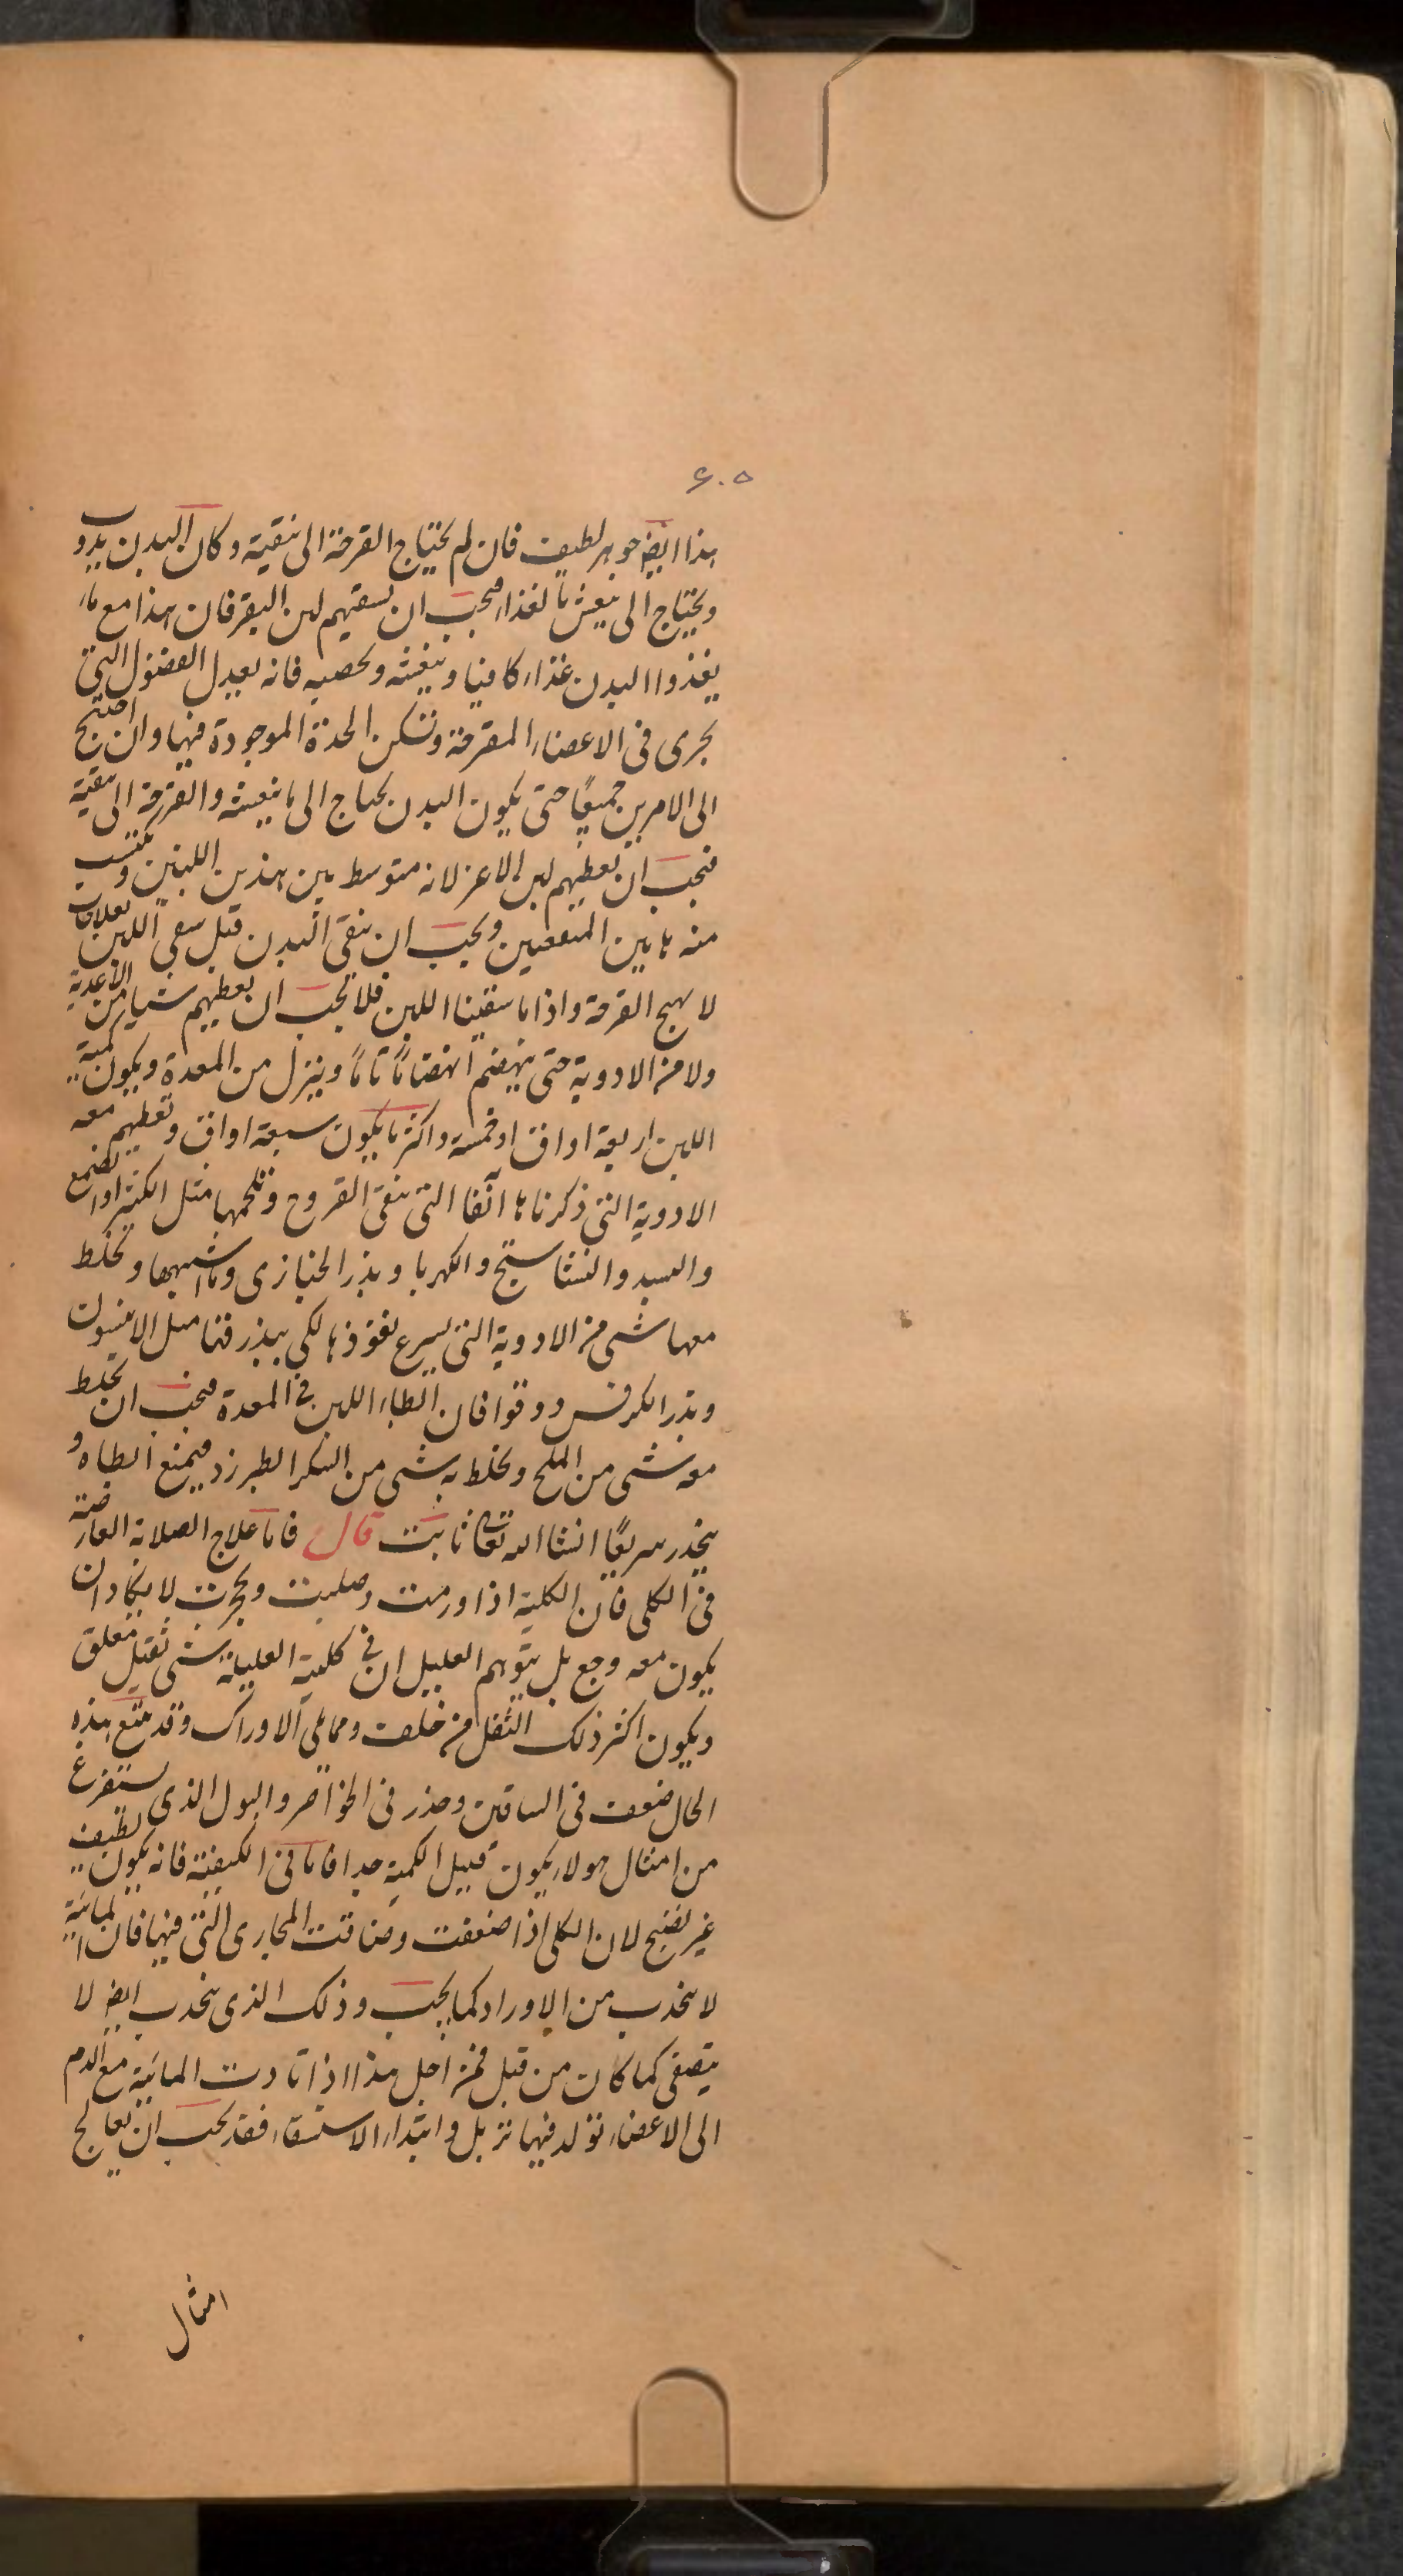 ۶۰۵
هذا ایض جوهر لطیف فان لم یحتاج القرحة الی تنقیة وکان البدن یذوب
ویحتاج الی ینعش بالغذاء فیجب ان یسقیهم لبن البقر فان هذا مع ما
یغذوا البدن غذاء کافیا وینعشه ویخصبه فانه یعدل الفضول التی
یجری فی الاعضاء المقرحة ویسکن الحدة الموجودة فیها وان احتیج
الی الامرین جمیعًا حتی یکون البدن یحتاج الی ما ینعشه والقرحة الی تنقیة
فیجب ان یعطیهم لبن الماعز لانه متوسط بین هذین اللبنین ویکتسب
منه ما بین المنفعتین ویجب ان ینقی البدن قبل سقی اللبن لعلاقات
لا یهیج القرحة واذا ما سقینا اللبن فلا یجب ان یعطیهم شیا من الاغدیة
ولا من الادویة حتی ینهضم انهضامًا تامًا وینزل من المعدة ویکون کمیة
اللبن اربعة اواق او خمسة واکثر ما یکون سبعة اواق ویعطیهم معه
الادویة التی ذکرناها آنفا التی ینقی القروح ویلحمها مثل الکثیرا والصمغ
والسبد والنشاستج والکهربا وبذر الخبازی وما اشبهها ویخلط
معها شی من الادویة التی یسرع نفوذها لکی یبذرقنا مثل الانیسون
وبذر الکرفس ودوقوا فان ابطاء اللبن فی المعدة فیجب ان یخلط
معه شی من الملح ویخلط به شی من السکر الطبرزد فیمنع ابطاه و
ینحدر سریعًا انشا الله تعالی ثابت قال فاما علاج الصلابة العارضة
فی الکلی فان الکلیة اذا ورمت وصلبت وتحجرت لا یکاد ان
یکون معه وجع بل یتوهم العلیل ان فی کلیته العلیلة شی ثقیل متعلق
ویکون اکثر ذلک الثقل من خلف ومما یلی الاوراک وقد یتبع هذه
الحال ضعف فی الساقین وخدر فی الخواصر والبول الذی یستفرغ
من امثال هولاء یکون قلیل الکمیة جدا فاما فی الکیفیة فانه یکون لطیف
غیر نضیج لان الکلی اذا ضعفت وضاقت المجاری التی فیها فان المائیة
لا ینجذب من الاوراد کما یجب وذلک الذی ینجذب ایض لا
یتصفی کما کان من قبل فمن اجل هذا اذا تادت المائیة مع الدم
الی الاعضاء تولد فیها تربل وابتداء الاستسقاء فقد یجب ان یعالج
امثال